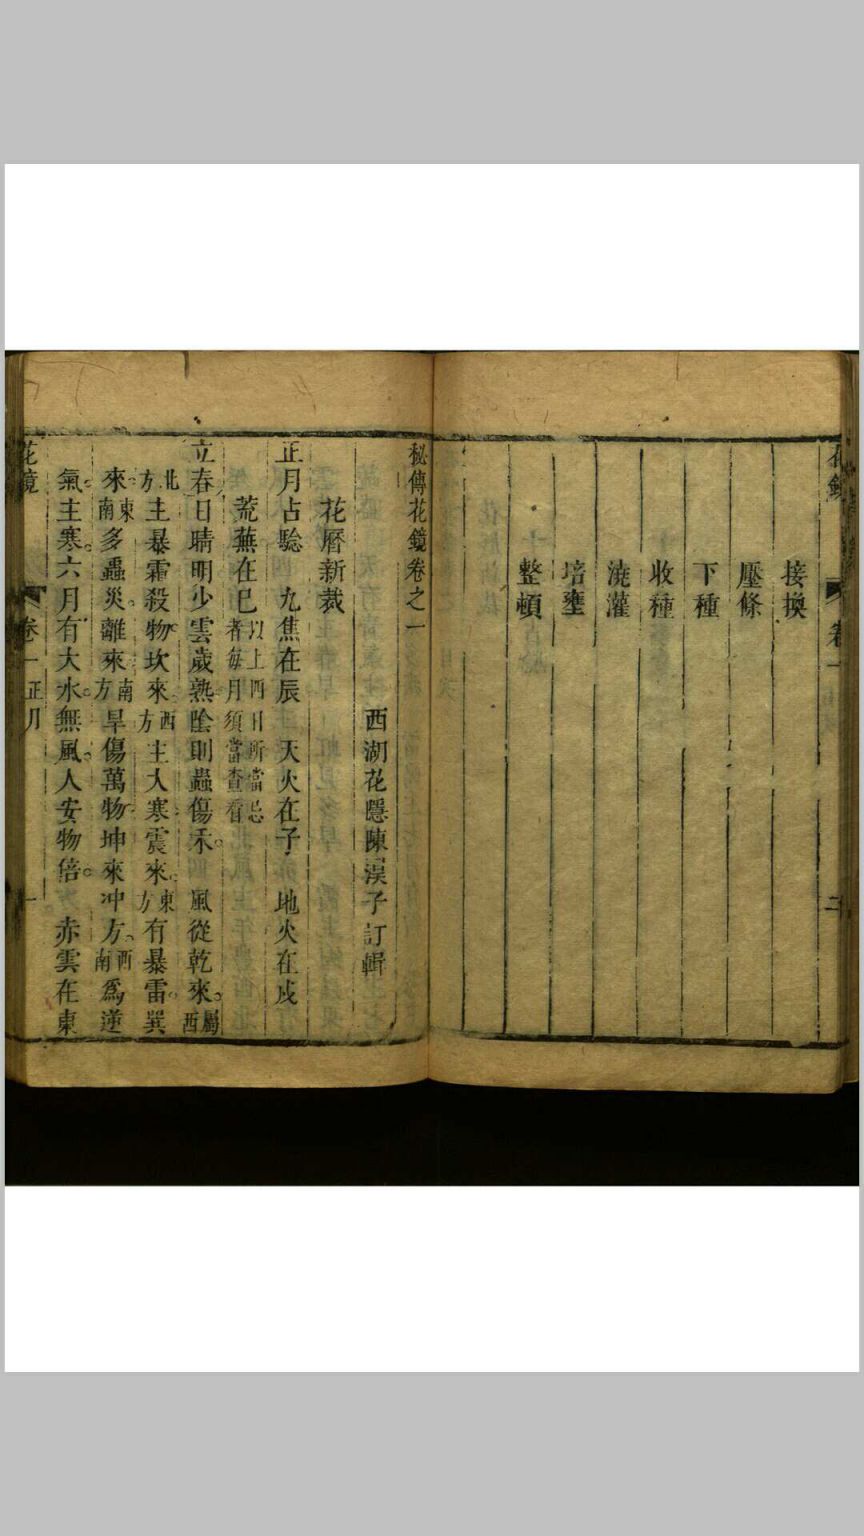 接換
壓條
下種
收種
澆灌
培壅
整頓
二
秘傳花鏡卷之一
西湖花隱陳淏子訂輯
花曆新裁
正月占驗　九焦在辰　天火在子　地火在戌
荒蕪在巳以上四日所當忌者每月須當查看
立春日晴明少雲歲熟陰則蟲傷禾。風從乾來。屬西
北方主暴霜殺物。坎來。西方主大寒震來。東方有暴雷。巽
來。東南多蟲災。離來南方旱傷萬物。坤來冲方。西南爲逆
氣主寒。六月有大水。無風。人安物倍。　赤雲在東
花鏡　卷一　正月　一